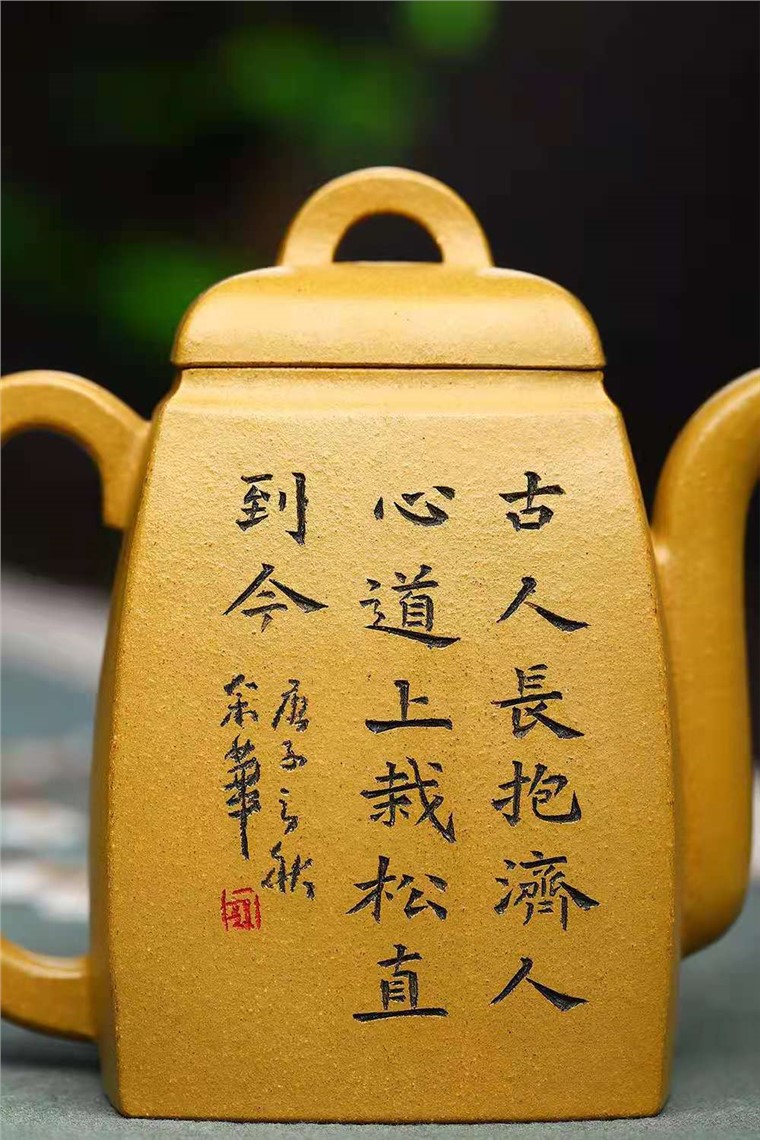 古人長抱濟人
心道上栽松直
到今
庚子之秋